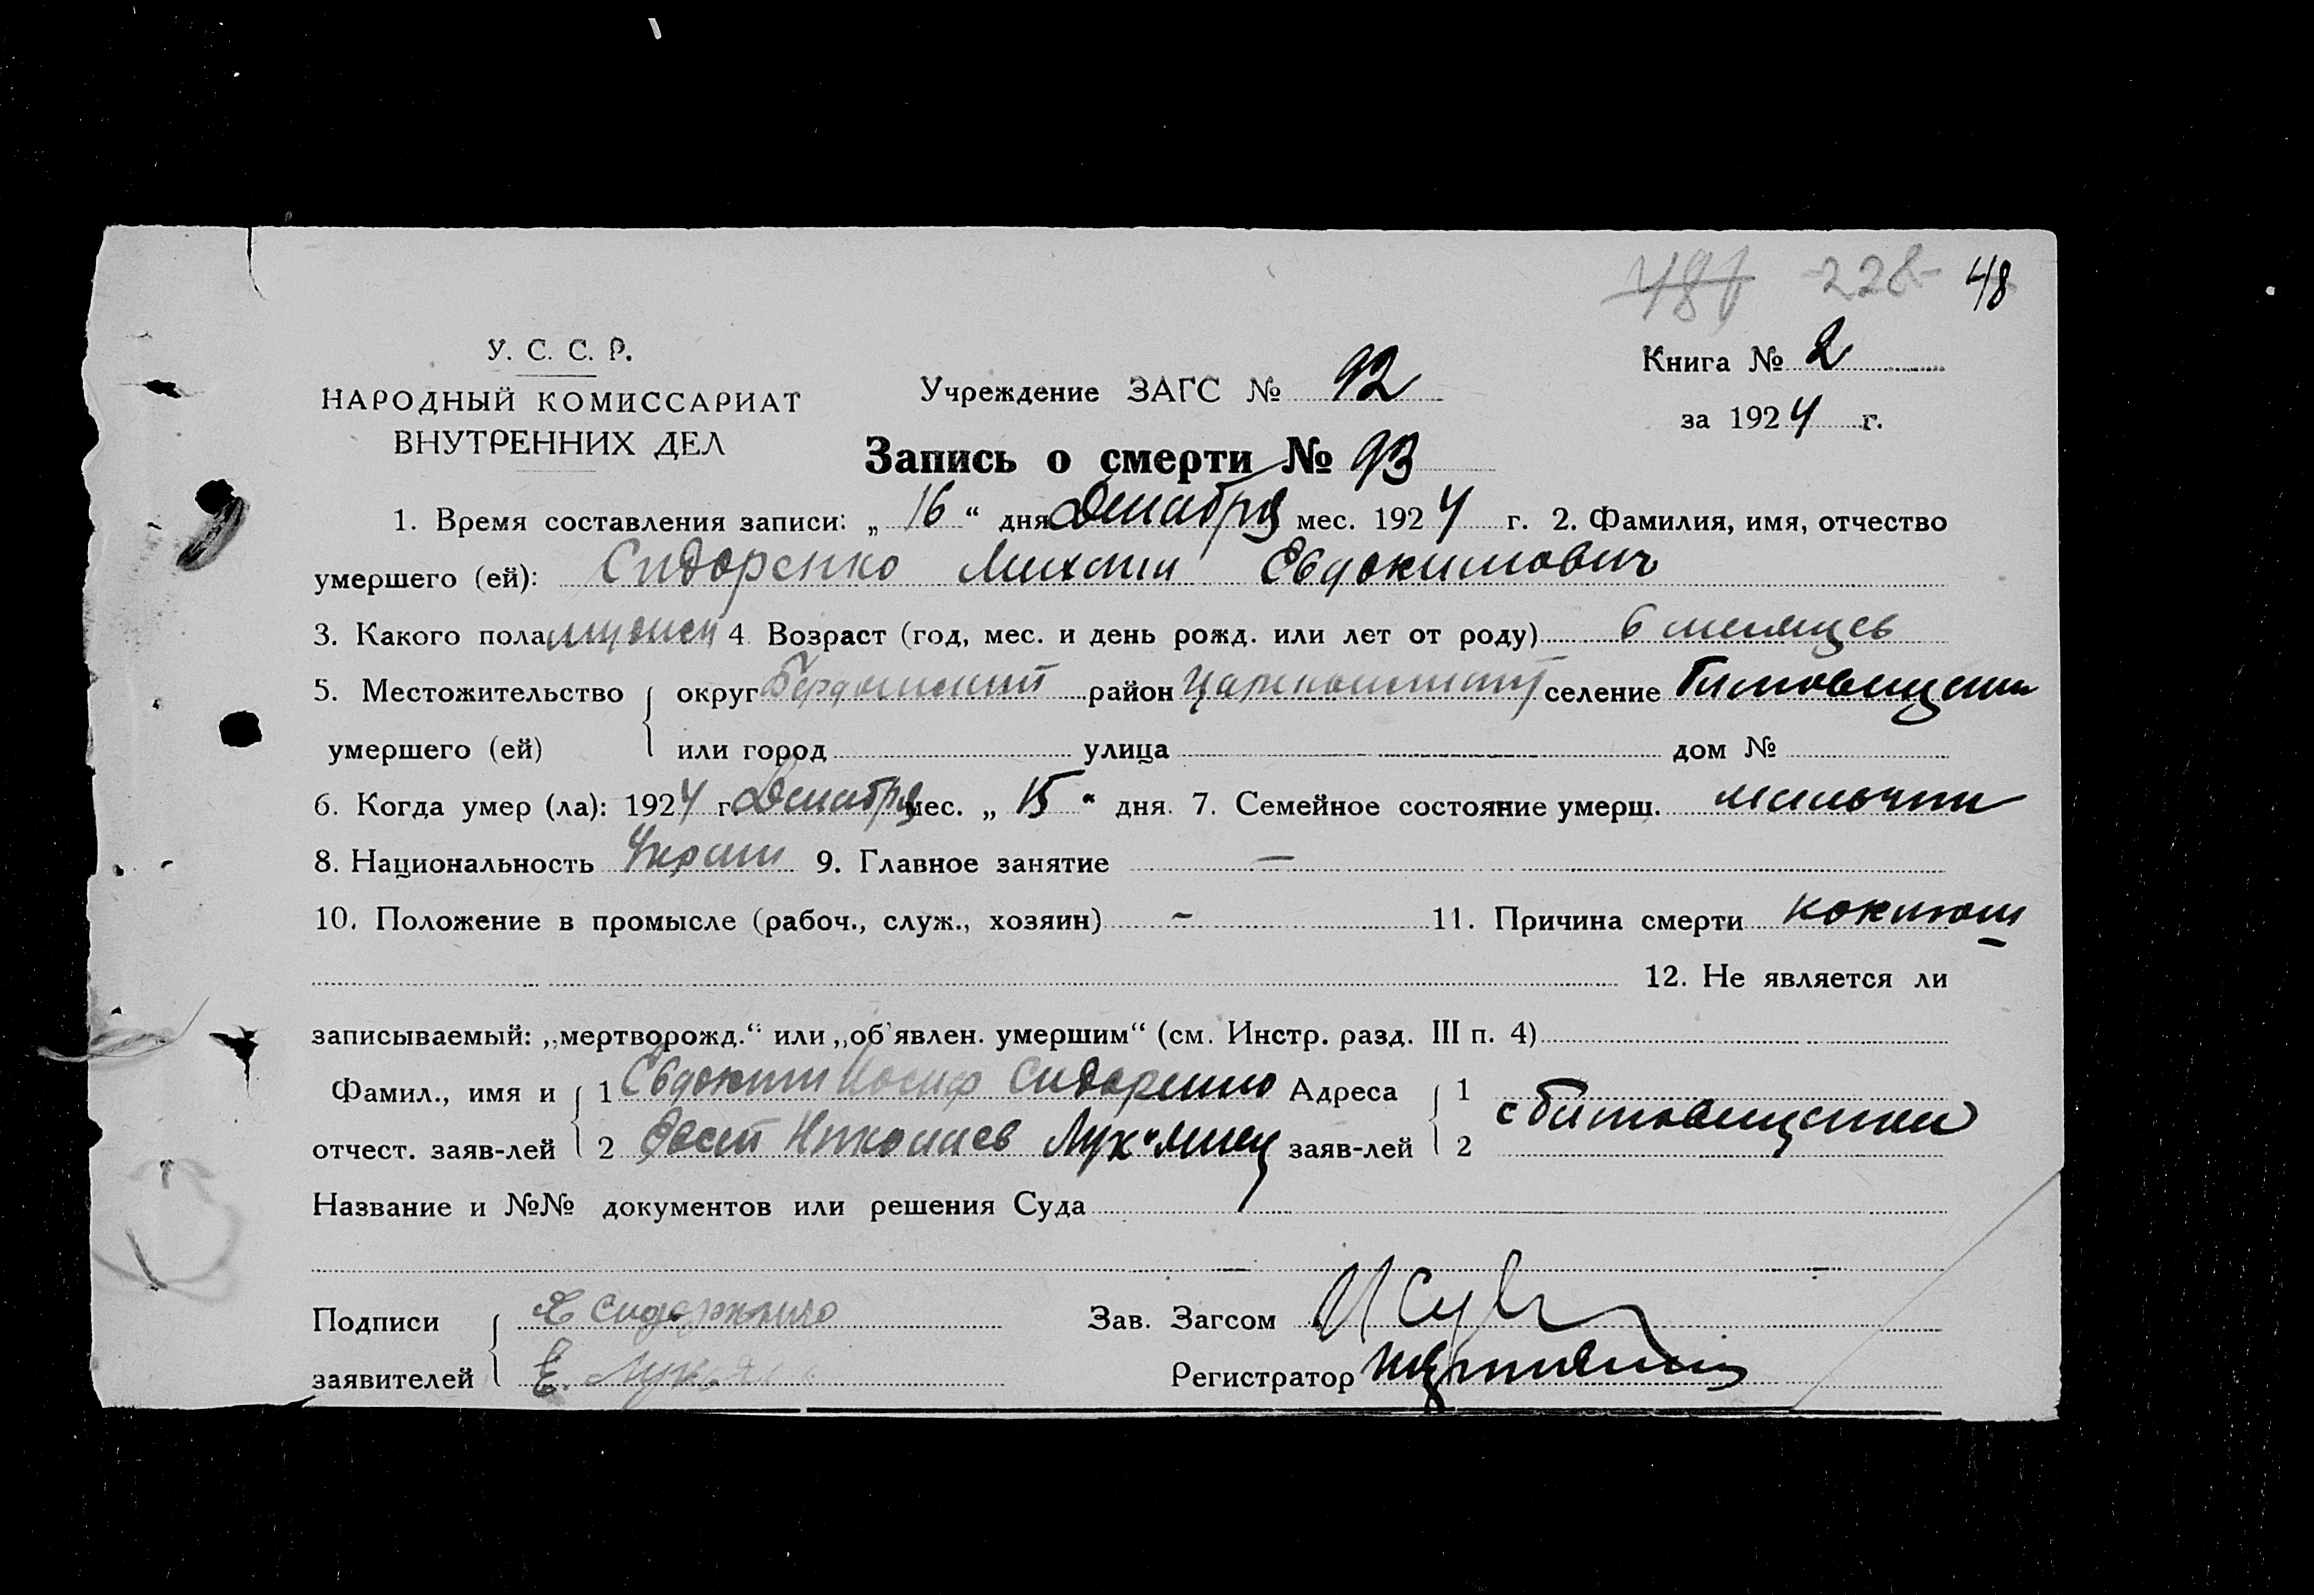 481 -228- 48
У. С. С. Р.
НАРОДНЫЙ КОМИССАРИАТ
ВНУТРЕННИХ ДЕЛ
Учреждение ЗАГС № 92
Книга № 2
за 1924 г.
Запись о смерти № 93
1. Время составления записи: „16“ дня Декабря мес. 1924 г. 2. Фамилия, имя, отчество
умершего (ей): Сидоренко Михаил Евдокимович
3. Какого пола мужск 4 Возраст (год, мес. и день рожд. или лет от роду) 6 месяцев
5. Местожительство округ район селение
умершего (ей) или город улица дом №
6. Когда умер (ла): 1924 г. Декабря мес. „15“ дня. 7. Семейное состояние умерш. мальчик
8. Национальность Украин 9. Главное занятие —
10. Положение в промысле (рабоч., служ., хозяин) - 11. Причина смерти коклюш
12. Не является ли
записываемый: „мертворожд.“ или „об'явлен. умершим“ (см. Инстр. разд. III п. 4)
Фамил., имя и 1 Евдоким Иосиф Сидоренко Адреса 1
отчест. заяв-лей 2 Николаев заяв-лей 2
Название и №№ документов или решения Суда
Подписи Е Сидоренко Зав. Загсом
заявителей Е. Регистратор